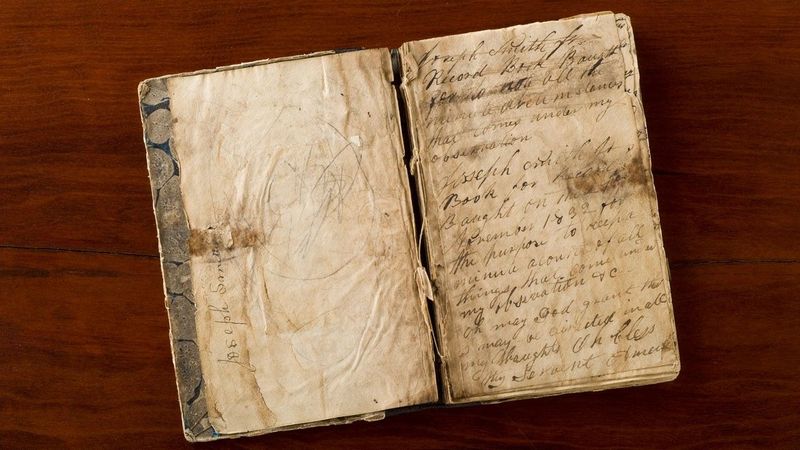 Joseph Smith
Joseph Smith Jr
Record Book Baught
for to note all the
minute circumstances
that comes under my
observation
Joseph Smith Jr
Book for Record
Baught on the
November 1832 for
the purpose to keep a
minute acount of all
things that come under
my obse_rvation &c
oh may God grant that
I may be directed in all
my thaughts Oh bless
thy Servent Amen